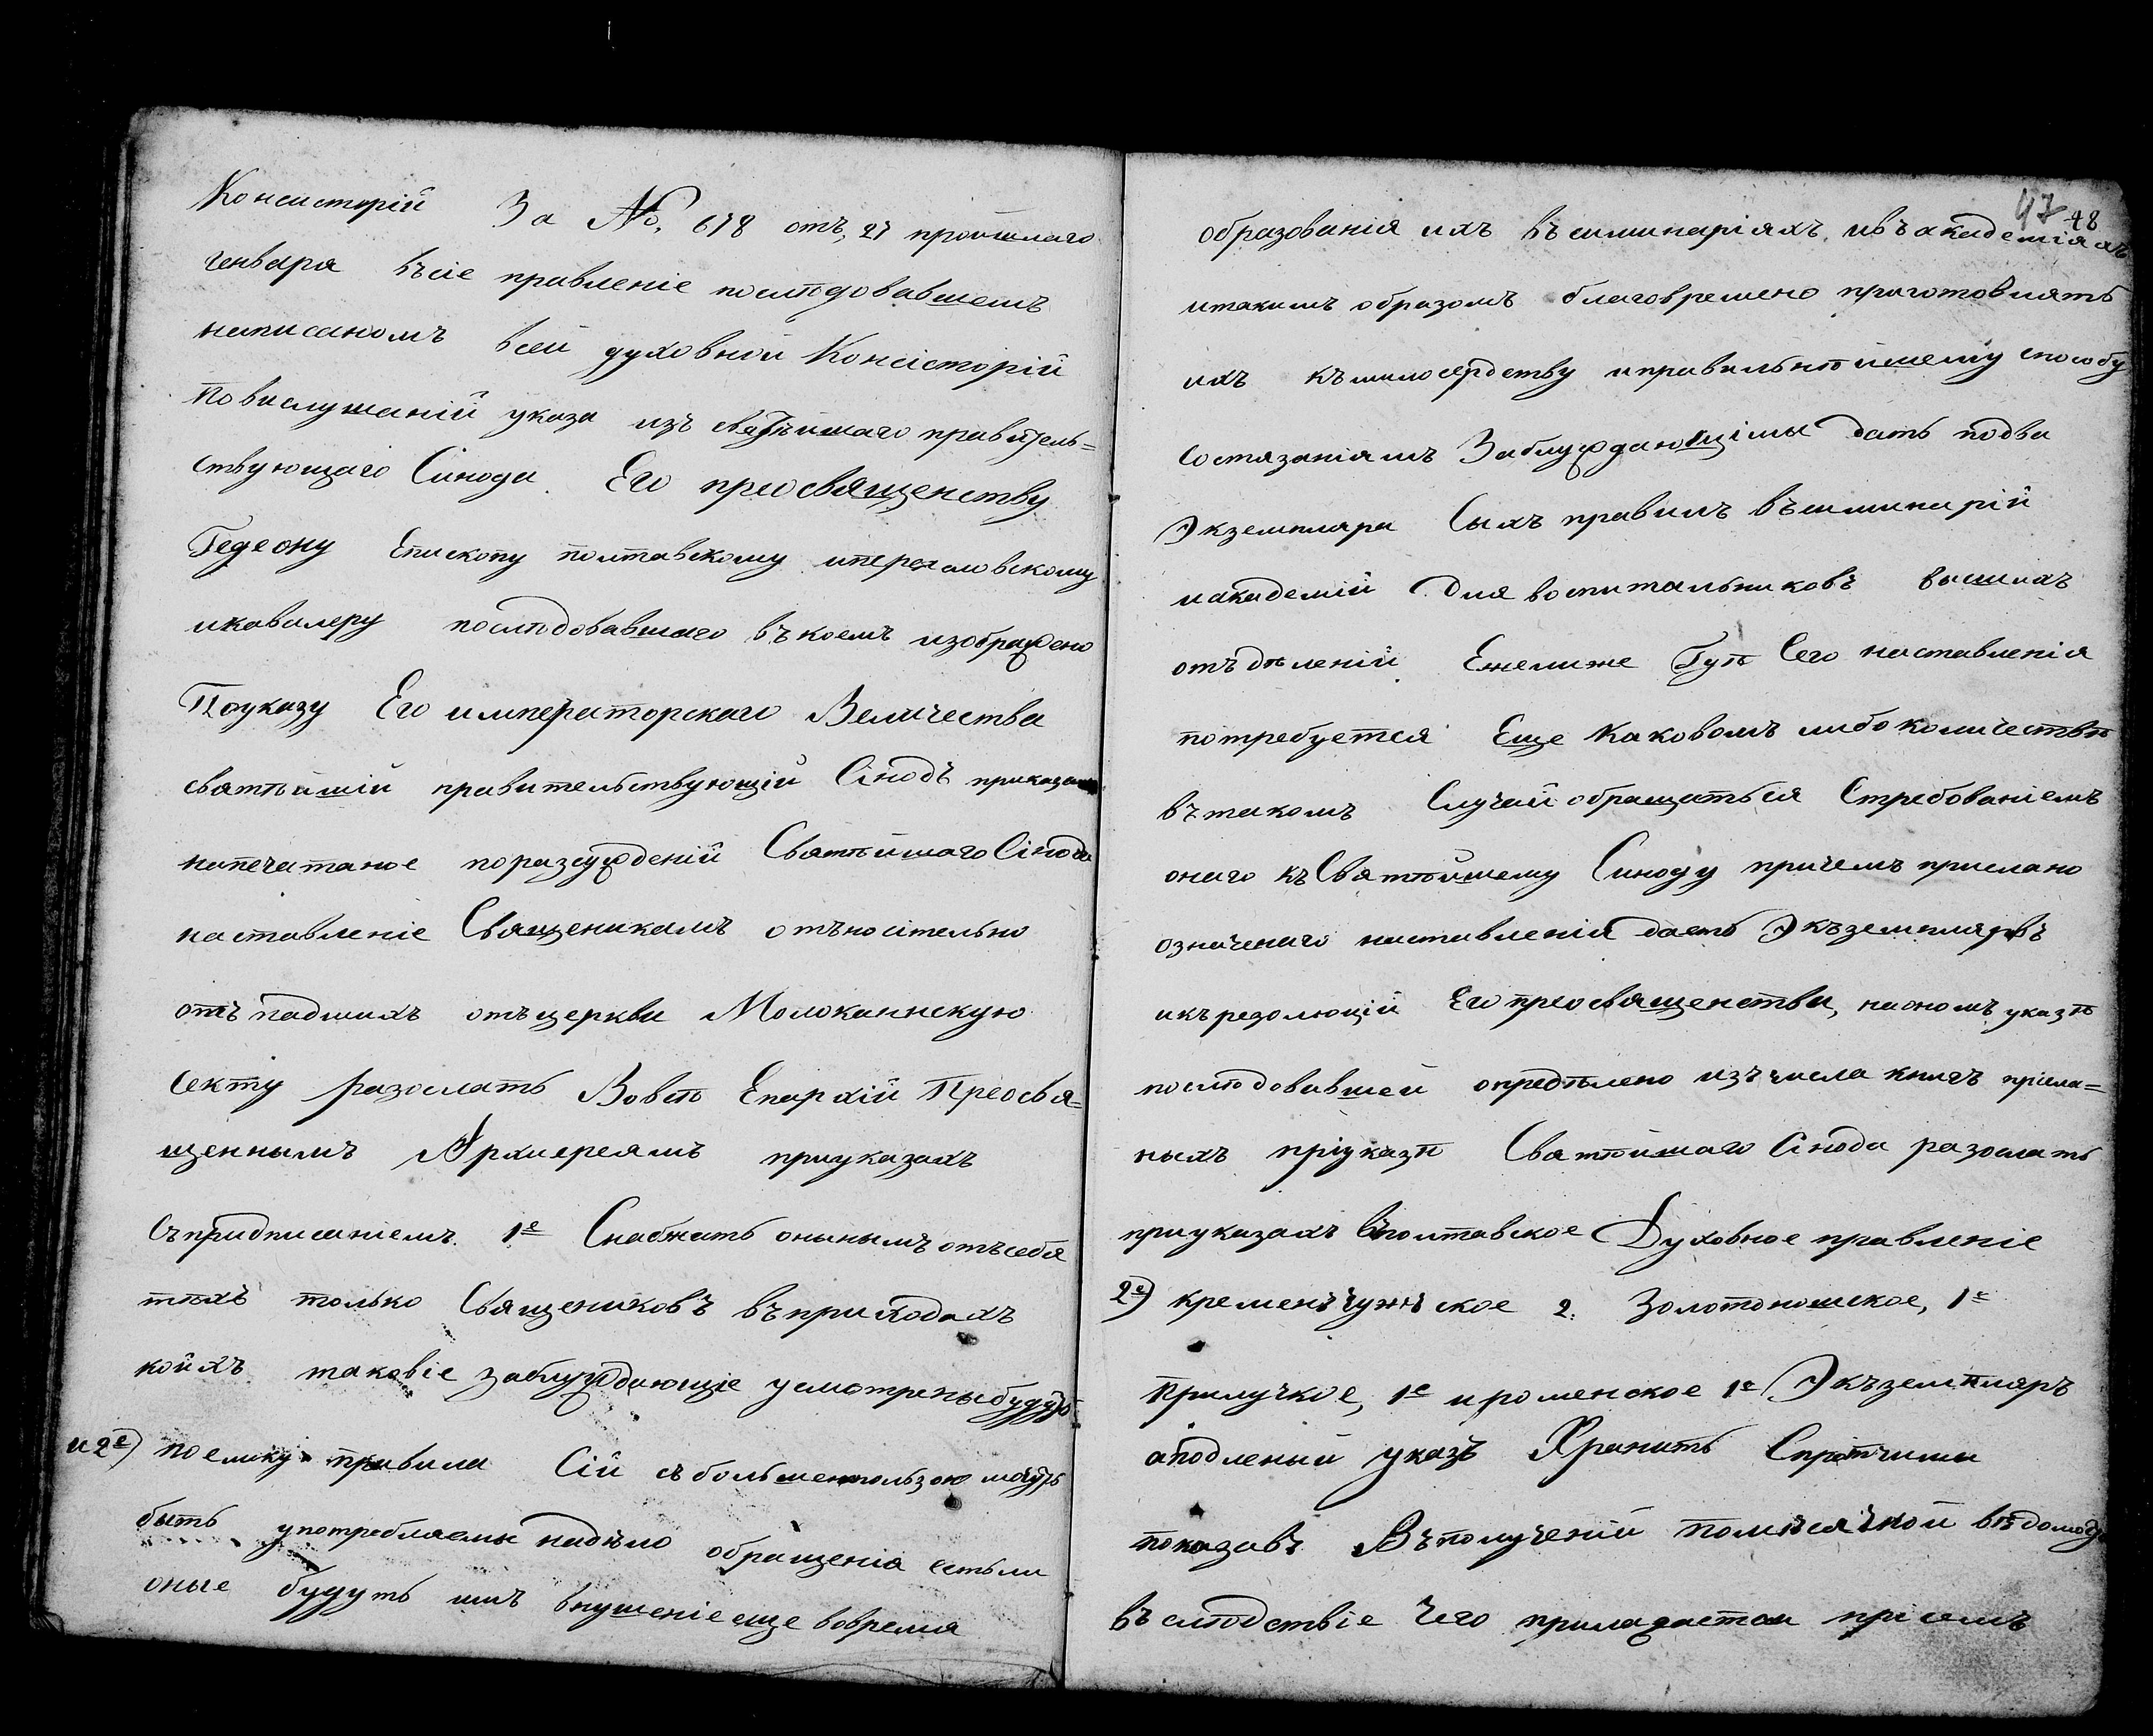 Консисторій За №, 678 отъ, 27 пройшлаго
генваря въсіе правленіе послѣдовавшемъ
написаномъ всей духовной Консісторій
по вислушаній указа изъ святѣйшаго правитель=
ствующаго Сінода. Его преосвященству
Гедеону Епископу полтавскому ипереяловскому
икавалеру послѣдовавшаго въкоемъ изображено
Поуказу Его императорскаго Величества
святѣйшій правительствующій Сінодъ приказали
напечатаное поразсужденій Святѣйшаго Сінода
наставленіе Священикамъ отъносітельно
отъпадшихъ отъцеркви Молоканнскую
секту разослать Вовсѣ Епархій Преосвя=
щеннымъ Архиереямъ приуказахъ
Съпридписаніемъ 1е Снабжать онынымъ отъсебя
тѣхъ только Священиковъ въприходахъ
койхъ таковіе заблуждающіе усмотреныбудутъ
и 2е) поелику правила Сій събольшеюпользою могутъ
быть употребляемы надѣло обращенія естьли
оные будутъ имъ внушеніе еще вовремя
47 48
образованія ихъ въсиминаріяхъ, ивъакадеміяхъ
итакимъ образомъ благовремено приготовлять
ихъ къмилосердству иправильнѣйшему способу
Состязаніямъ Заблуждающімы дать подва
Экземпляра Сыхъ правилъ въсиминарій
иакадемій Для воспитальниковъ высшихъ
отъдѣленій. Ежелиже Сего наставленія
потребуется Еще каковомъ либо количествѣ
вътакомъ Случай обращаться Стребованіемъ
онаго къСвятѣйшему Синоду причемъ прислано
означенаго наставленія Экъземпляръ
икърезолющій Егопреосвященства, наономъ указѣ
послѣдовавшей опредѣлено изъчисла книгъ присла=
ныхъ пріуказѣ Святѣйшаго Сінода разослать
приуказахъ вполтавское Духовное правленіе
2е) кременъчужъское 2. Золотоношское, 1е
Прилучкое, 1е ироменское 1е Экъземпляръ
аподленый указъ Хранить Спротчими
показавъ Въполученій помѣсячной вѣдомости
въслѣдствіе Чего прилагается прісемъ